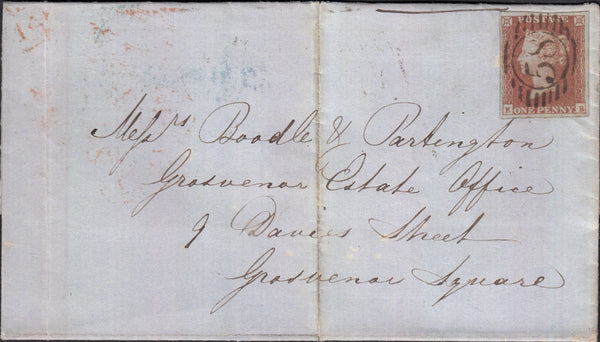 POSTAGE
58
E E
ONE PENNY
Messrs Boodle & Partington
Grosvenor Estate Office
9 Davies Street
Grosvenor Square